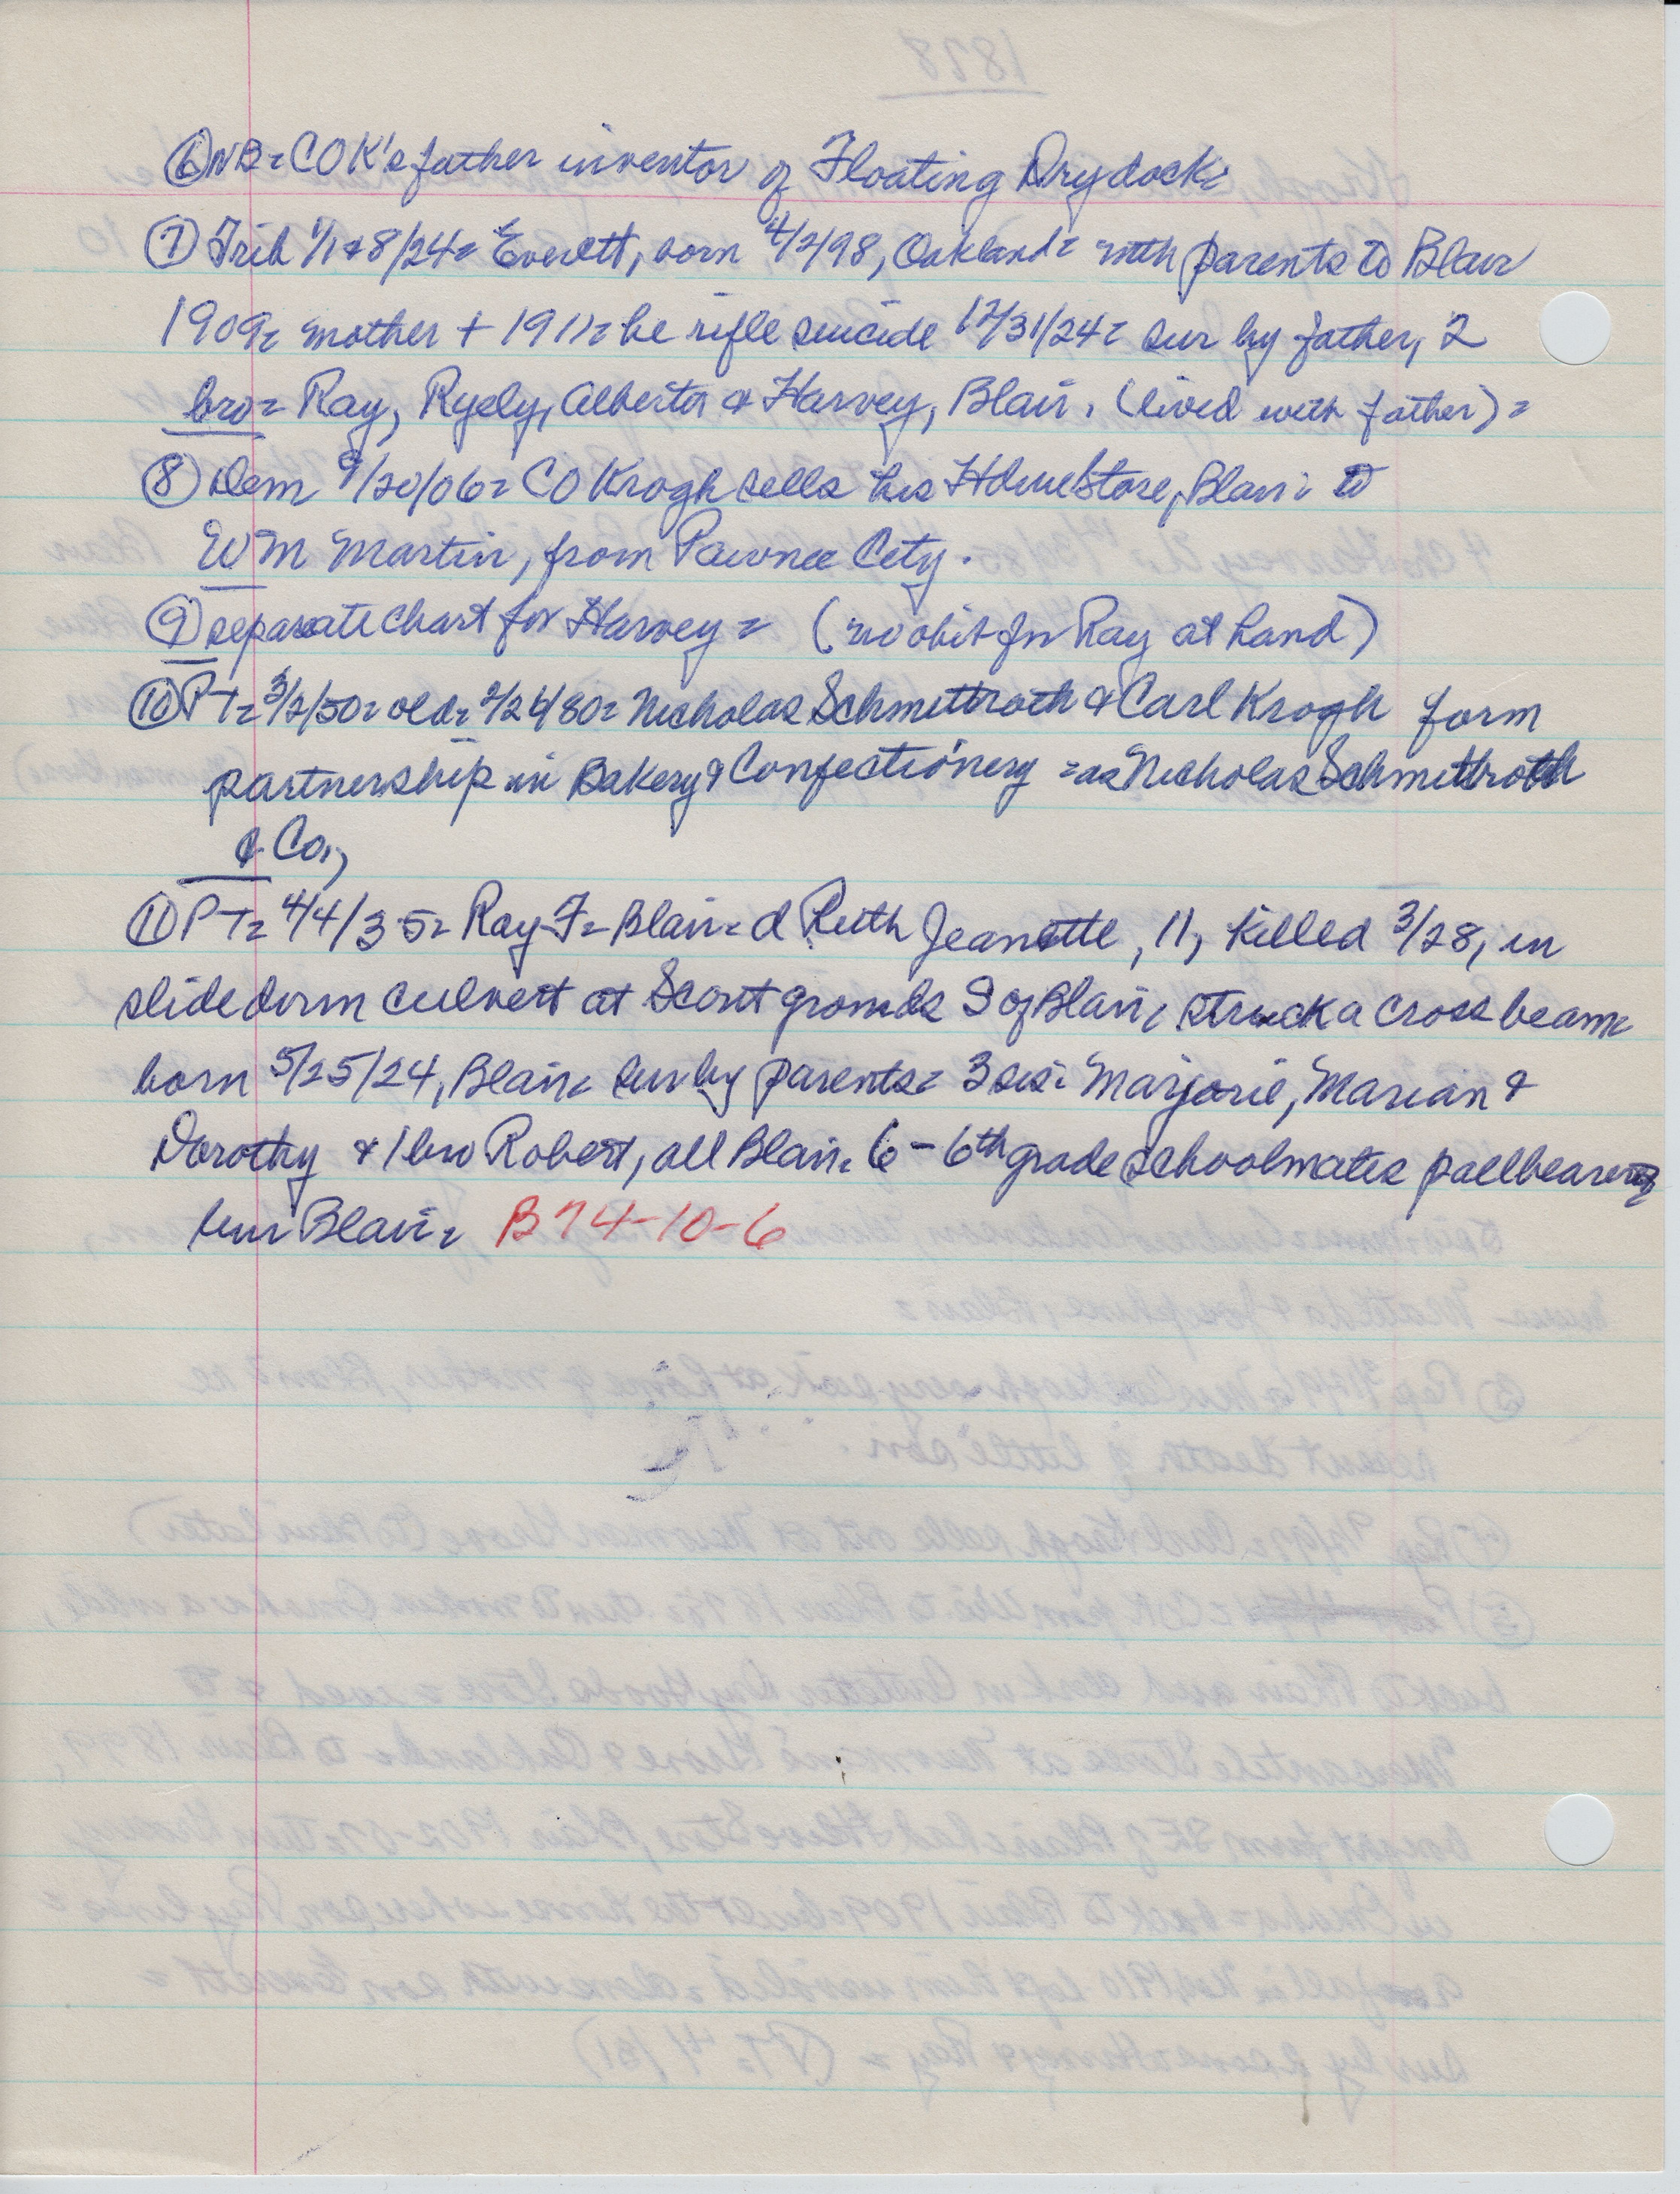 ⑥ NB= COK's father inventor of Floating Drydock=
⑦ Trib 1/1 & 8/24= Everett, born 4/2/98, Oakland= with parents to Blair
1909= mother + 1911= he rifle suicide 12/31/24= sur by father, 2
bro= Ray, Ryely, Alberta & Harvey, Blair, (lived with father)=
⑧ Dem 9/20/06= CO Krogh sells his Hdwe Store, Blair= to
WM Martin, from Pawnee City.
⑨ separate chart for Harvey= (no obit for Ray at hand)
⑩ PT= 3/2/50= old= 2/24/80= Nicholas Schmittroth & Carl Krogh form
partnership in Bakery & Confectionery =as Nicholas Schmittroth
& Co.,
⑪ PT= 4/4/35= Ray F= Blair= d Ruth Jeanette, 11, killed 3/28, in
slide down culvert at Scout grounds S of Blair, struck a cross beam=
born 5/25/24, Blair= sur by parents= 3 sis= Marjorie, Marian &
Dorothy & 1 bro Robert, all Blair= 6 - 6th grade schoolmates pallbearers
bur Blair= B74-10-6